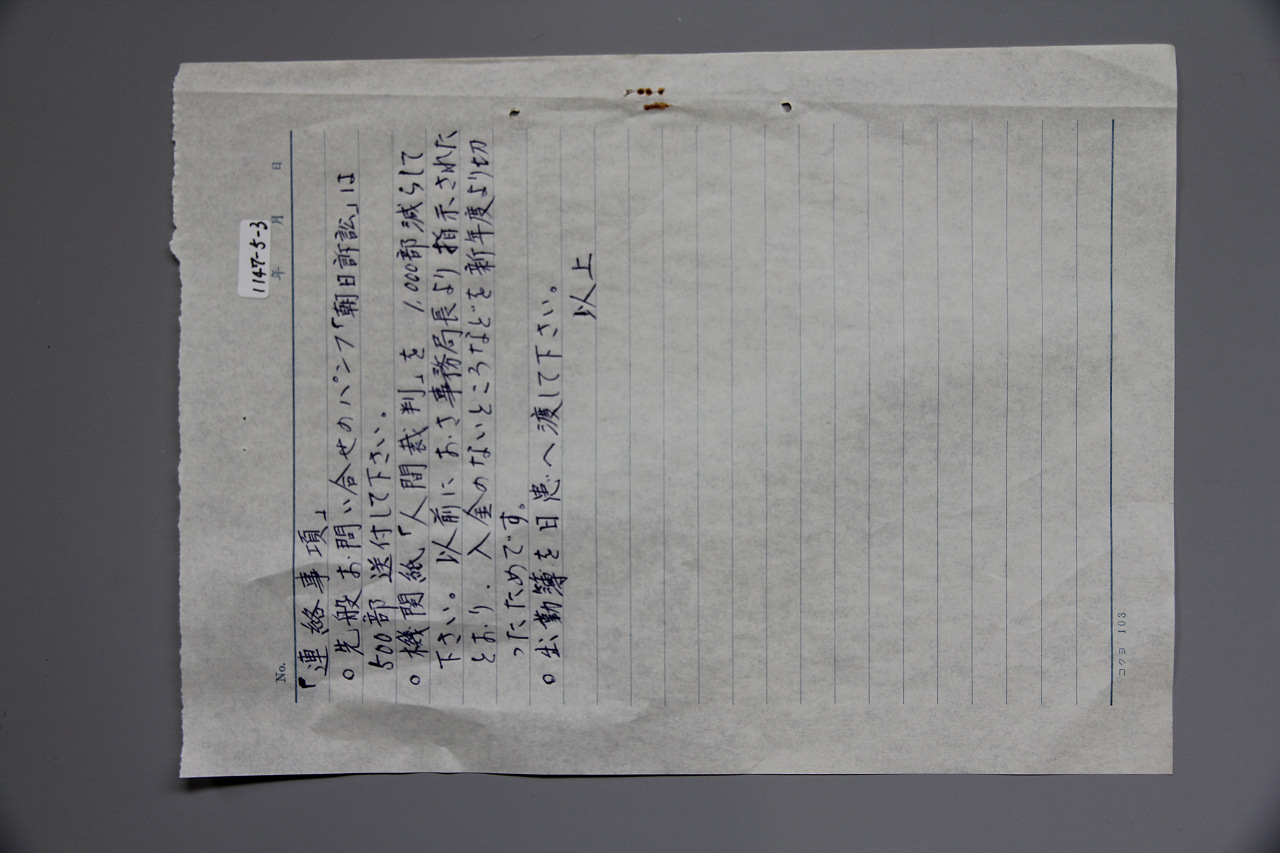 1147-5-3
No.
年 月 日
「連絡事項」
○先般お問い合せのパンフ「朝日訴訟」は
500部送付して下さい。
○機関紙「人間裁判」を1,000部減らして
下さい。以前におさ事務局長より指示された
とおり、入金のないところなどを新年度より切
ったためです。
○出勤簿を日患へ渡して下さい。
以上
コクヨ 103